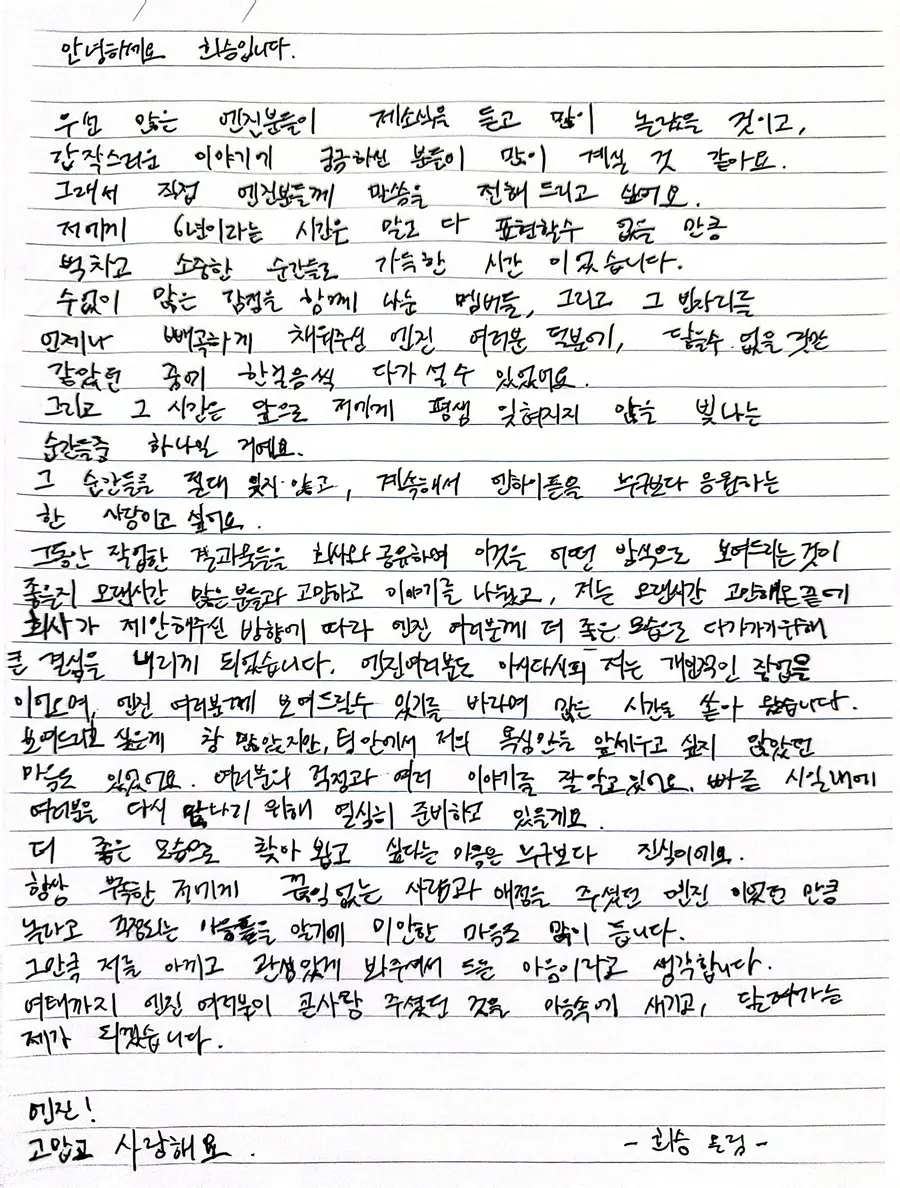 안녕하세요 희승입니다.
우선 많은 엔진분들이 제소식을 듣고 많이 놀랐을 것이고,
갑작스러운 이야기에 궁금하신 분들이 많이 계실 것 같아요.
그래서 직접 엔진분들께 말씀을 전해 드리고 싶어요.
저에게 6년이라는 시간은 말로 다 표현할수 없을 만큼
벅차고 소중한 순간들로 가득한 시간 이었습니다.
수없이 많은 감정을 함께 나눈 멤버들, 그리고 그 빈자리를
언제나 빼곡하게 채워주신 엔진 여러분 덕분에, 닿을수 없을 것만
같았던 꿈에 한걸음씩 다가 설수 있었어요.
그리고 그 시간은 앞으로 저에게 평생 잊혀지지 않을 빛나는
순간들중 하나일 거예요.
그 순간들을 절대 잊지 않고, 계속해서 엔하이픈을 누구보다 응원하는
한 사람이고 싶어요.
그동안 작업한 결과물들을 회사와 공유하며 이것을 어떤 방식으로 보여드리는것이
좋을지 오랜시간 많은분들과 고민하고 이야기를 나눴고, 저는 오랜시간 고민해온끝에
회사가 제안해주신 방향에 따라 엔진 여러분께 더 좋은 모습으로 다가가기위해
큰 결심을 내리게 되었습니다. 엔진여러분도 아시다시피 저는 개인적인 작업을
이어오며, 엔진 여러분께 보여드릴수 있기를 바라며 많은 시간을 쏟아 왔습니다.
보여드리고 싶은게 참 많았지만, 팀 안에서 저의 욕심만을 앞세우고 싶지 않았던
마음도 있었어요. 여러분의 걱정과 여러 이야기를 잘 알고 있어요. 빠른 시일내에
여러분을 다시 만나기 위해 열심히 준비하고 있을게요.
더 좋은 모습으로 찾아 뵙고 싶다는 마음은 누구보다 진심이에요.
항상 부족한 저에게 끊임없는 사랑과 애정을 주셨던 엔진 이였던 만큼
놀라고 걱정되는 마음들을 알기에 미안한 마음도 많이 듭니다.
그만큼 저를 아끼고 관심있게 봐주셔서 드는 마음이라고 생각합니다.
여태까지 엔진 여러분이 큰사랑 주셨던 것을 마음속에 새기고, 달려가는
제가 되겠습니다.
엔진!
고맙고 사랑해요.
- 희승 드림 -